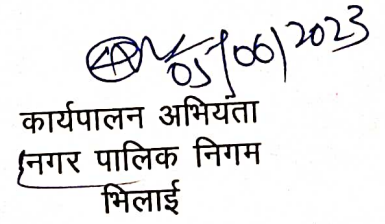 05/06/2023
कार्यपालन अभियंता
नगर पालिक निगम
भिलाई